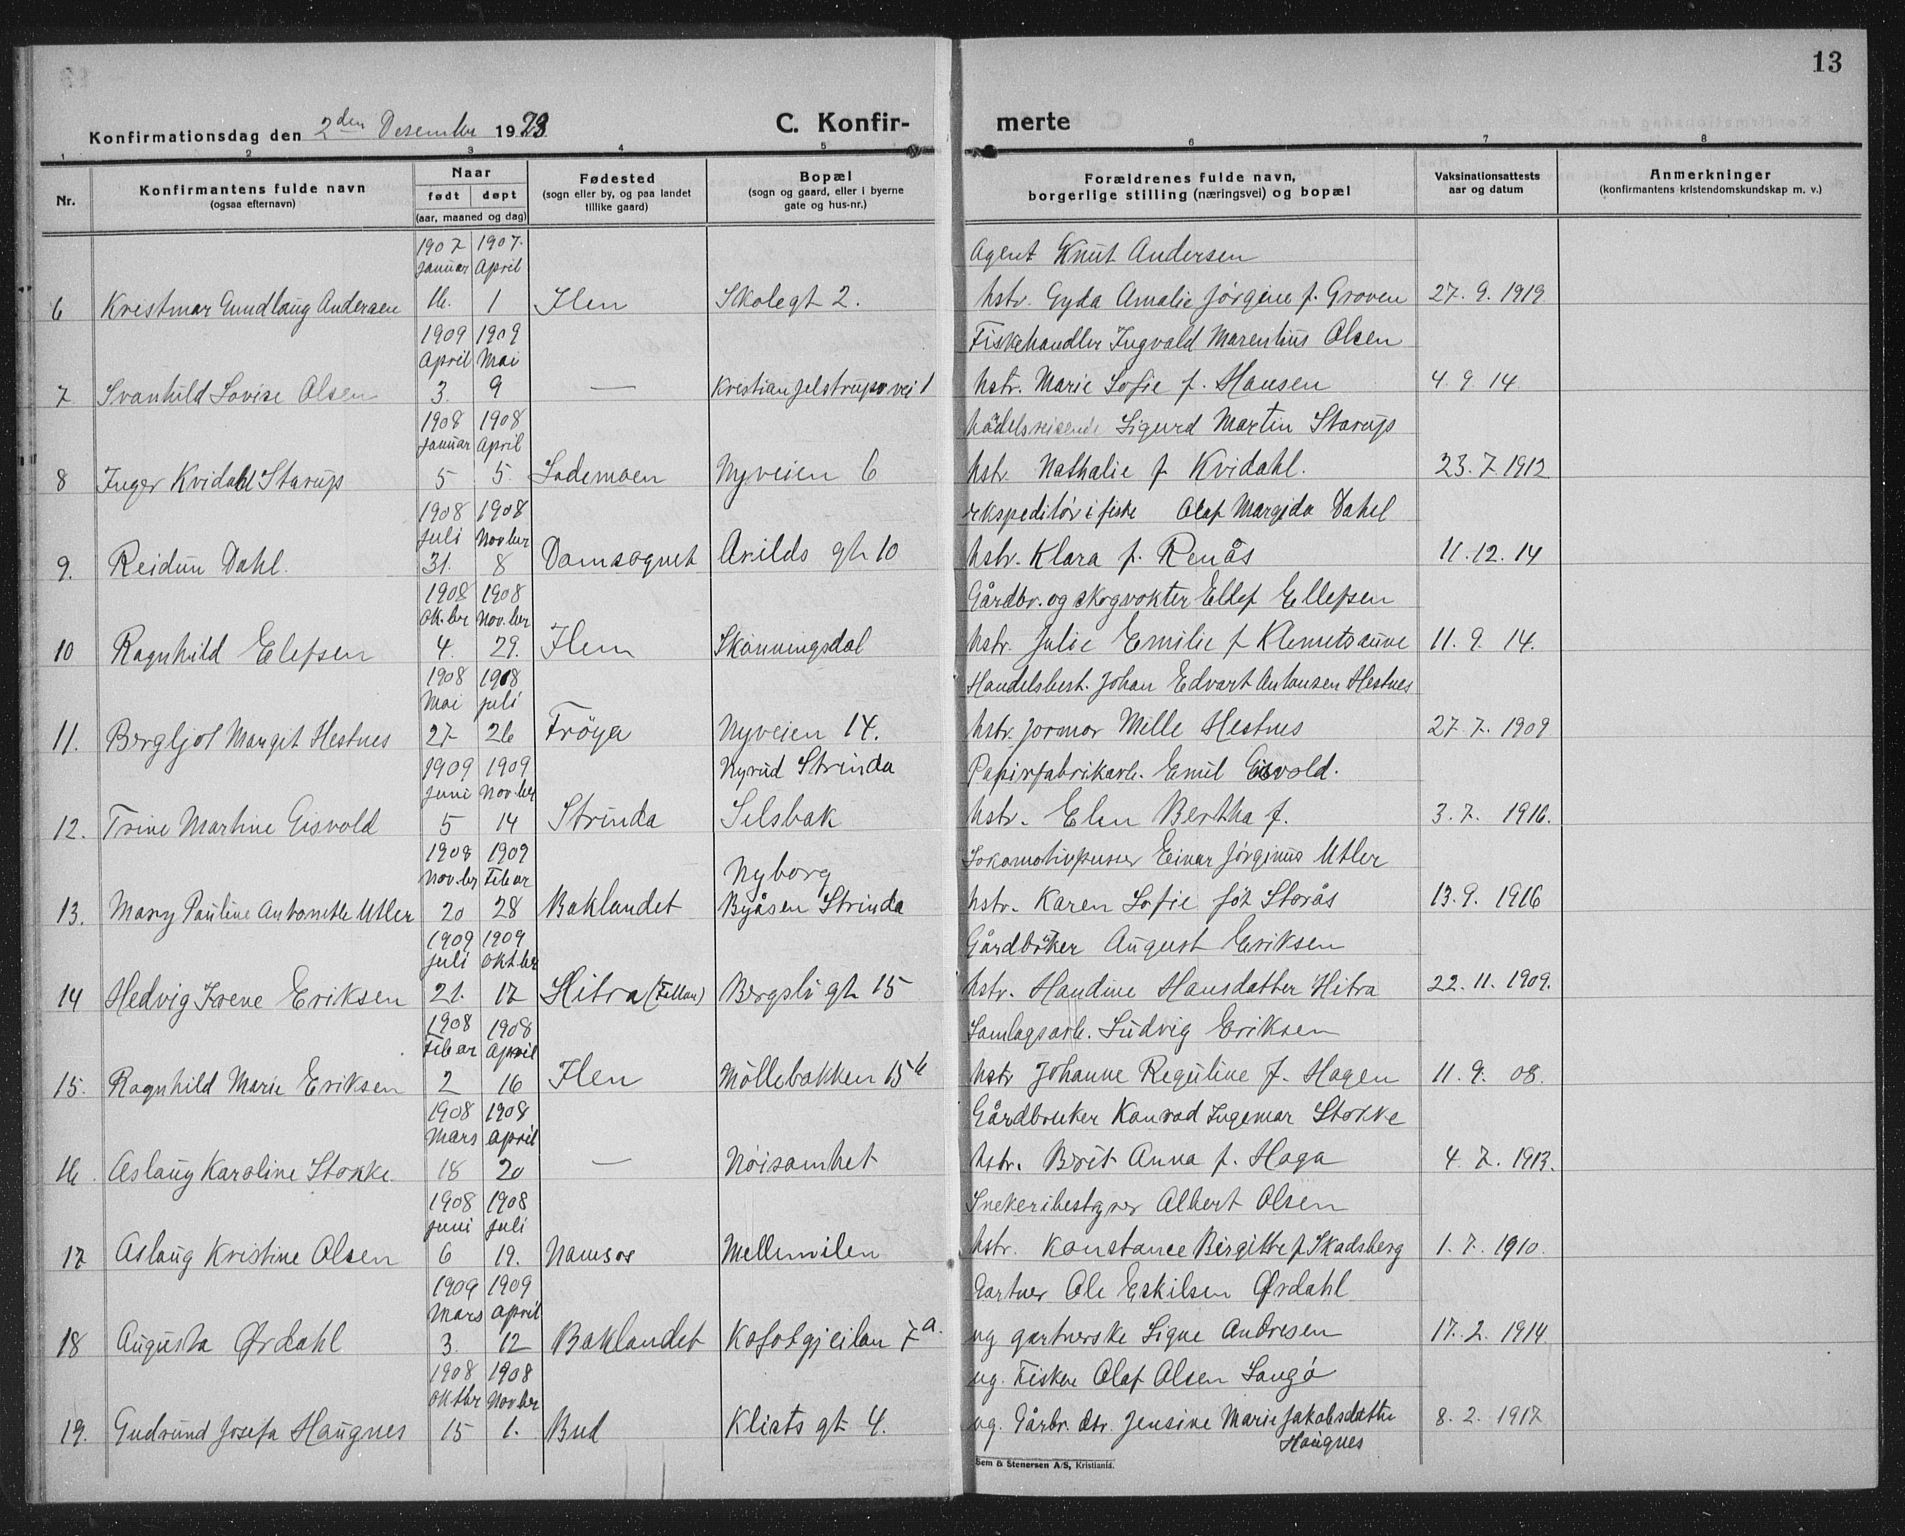 13
Konfirmationsdag den 2den Desember 1923
C. Konfirmerte
1 2 3 4 5 6 7 8
Nr.
Konfirmantens fulde navn
(ogsaa efternavn)
Naar
født døpt
(aar, maaned og dag)
Fødested
(sogn eller by, og paa landet
tillike gaard)
Bopæl
(sogn og gaard, eller i byerne
gate og hus-nr.)
Forældrenes fulde navn,
borgerlige stilling (næringsvei) og bopæl
Vaksinationsattests
aar og datum
Anmerkninger
(konfirmantens kristendomskundskap m. v.)
1907 1907. Agent Knut Andersen
Januar April
6 Krestmar Gundlaug Andersen 16. 1 Ilen Skolegt 2. hstr. Gyda Amalie Jørgine f. Groven 27. 9. 1919
1909 1909 Fiskehandler Ingvald Marentius Olsen
April Mai
7 Svanhild Lovise Olsen 3. 9 — Kristian Jelstrups vei 1 hstr. Marie Sofie f. Hansen 4. 9. 14.
1908 1908 Sigurd Martin Starup
Januar April
8 Inger Kvidahl Starup 5 5. Lademoen Nyveien 6 hstr. Nathalie f. Kvidahl. 23. 7. 1912
1908 1908 ekspeditør i fiske Olaf Margido Dahl
Juli Novber
9. Reidun Dahl. 31. 8 Domsognet Arilds gt 10 hstr. Klara f. Renås 11. 12. 14
1908 1908 Gårdbr. og skogvokter Ellef Ellefsen
Okt.ber Nov.ber
10 Ragnhild Elefsen 4. 29. Ilen Skonningsdal hstr. Julie Emilie f Klemetsaune 11. 9. 14.
1908 1908 Handelsbest. Johan Edvart Antonsen Hestnes
Mai juli
11. Bergljot Margit Hestnes 27 26 Frøya Nyveien 14. hstr. Jormor Mille Hestnes 27. 7. 1909
1909 1909 Nyrud Strinda Papirfabrikarb. Emil Eisvold.
Juni Nov.ber
12. Trine Martine Eisvold 5 14 Strinda Selsbak hstr. Elen Bertha f. 3. 7. 1916.
1908 1909 Lokomotivpusser Einar Jørginus Utler
Nov.ber Febar Nyborg
13. Mary Pauline Antonette Utler 20 28 Baklandet Byåsen Strinda hstr. Karen Sofie föt Storås 13. 9. 1916
1909 1909 Gårdbruker August Eriksen
Juli Okt.ber
14 Hedvig Irene Eriksen 21. 17 Hitra (Fillan) Bergsli gt 15 hstr. Handine Hansdatter Hitra 22. 11. 1909.
1908 1908 Samlagsarb. Ludvig Eriksen
Febar April
15. Ragnhild Marie Eriksen 2 16 Ilen Möllebakken 15 b hstr Johanne Reguline f. Hagen 11. 9. 08.
1908 1908 Gårdbruker Konrad Ingemar Stokke
Mars april
16. Aslaug Karoline Stokke. 18 20 — Nöisomhet hstr. Brit Anna f. Haga 4. 7. 1913.
1908 1908 Snekeribestyrer Albert Olsen
Juni Juli
17 Aslaug Kristine Olsen 6 19. Namsos Mellemilen hstr. Konstance Birgitte f Skadsberg 1. 7. 1910.
1909 1909 Gartner Ole Eskilsen Ørdahl
Mars april
18 Augusta Ørdahl 3. 12 Baklandet Kofotgjeilan 7a. ug gartnerske Signe Andresen 17. 2. 1914.
1908 1908 ug. Fisker Olaf Olsen Langø
Oktbr Novber
19. Gudrund Josefa Haugnes 15 1. Bud Kliats gt 4. ug. Gårbr. dtr. Jensine Marie Jakobsdatter 8. 2. 1917
Haugnes
Sem & Stenersen A/S, Kristiania.